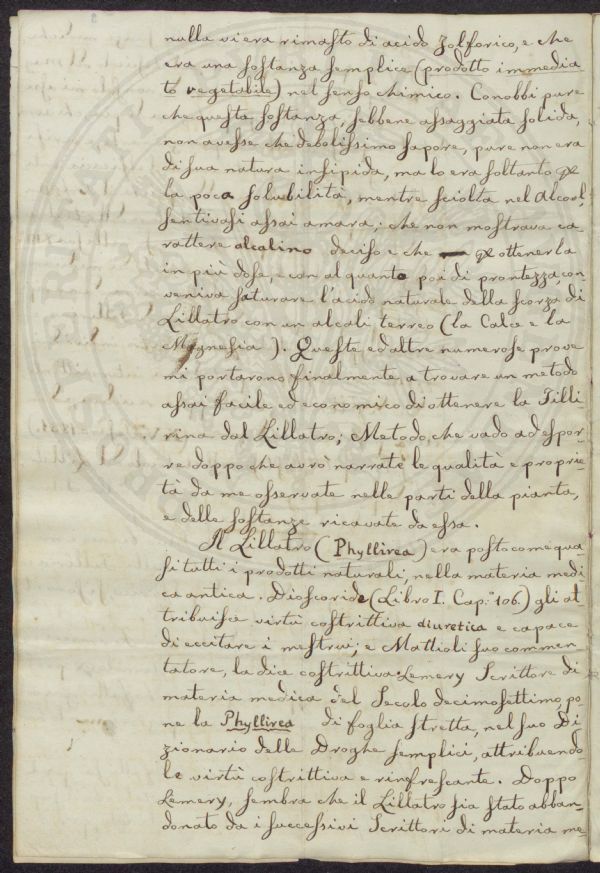 nulla vi era rimasto di acido zolforico, e che
era una sostanza semplice (prodotto immedia
to vegetabile) nel senso chimico. Conobbi pure
che questa sostanza, sebbene assaggiata solida,
non avesse che debolissimo sapore, pure non era
di sua natura insipida, ma lo era soltanto p
la poca solubilità, mentre sciolta nel Alcool,
sentivasi assai amara; che non mostrava ca-
rattere alcalino deciso e che p ottenerla
in più dose, e con alquanto poi di prontezza, con
veniva saturare l'acido naturale della scorza di
Lillatro con un alcali terreo (la Calce e la
Magnesia). Queste ed altre numerose prove
mi portarono finalmente a trovare un metodo
assai facile ed economico di ottenere la Filli-
rina dal Lillatro; Metodo, che vado ad espor-
re doppo che avrò narrate le qualità e proprie-
tà da me osservate nelle parti della pianta,
e delle sostanze ricavate da essa.
Il Lillatro (Phyllirea) era posto come qua-
si tutti i prodotti naturali, nella materia medi
ca antica. Dioscoride (Libro I. Cap.° 106.) gli at
tribuisce virtù costrittiva diuretica e capace
di eccitare i mestrui; e Mattioli suo commen-
tatore, la dice costrittiva. Lemery Scrittore di
materia medica del Secolo decimosettimo, po-
ne la Phyllirea di foglia stretta, nel suo Di
zionario delle Droghe semplici, attribuendo-
le virtù costrittiva e rinfrescante. Doppo
Lemery, sembra che il Lillatro sia stato abban-
donato da i successivi Scrittori di materia me